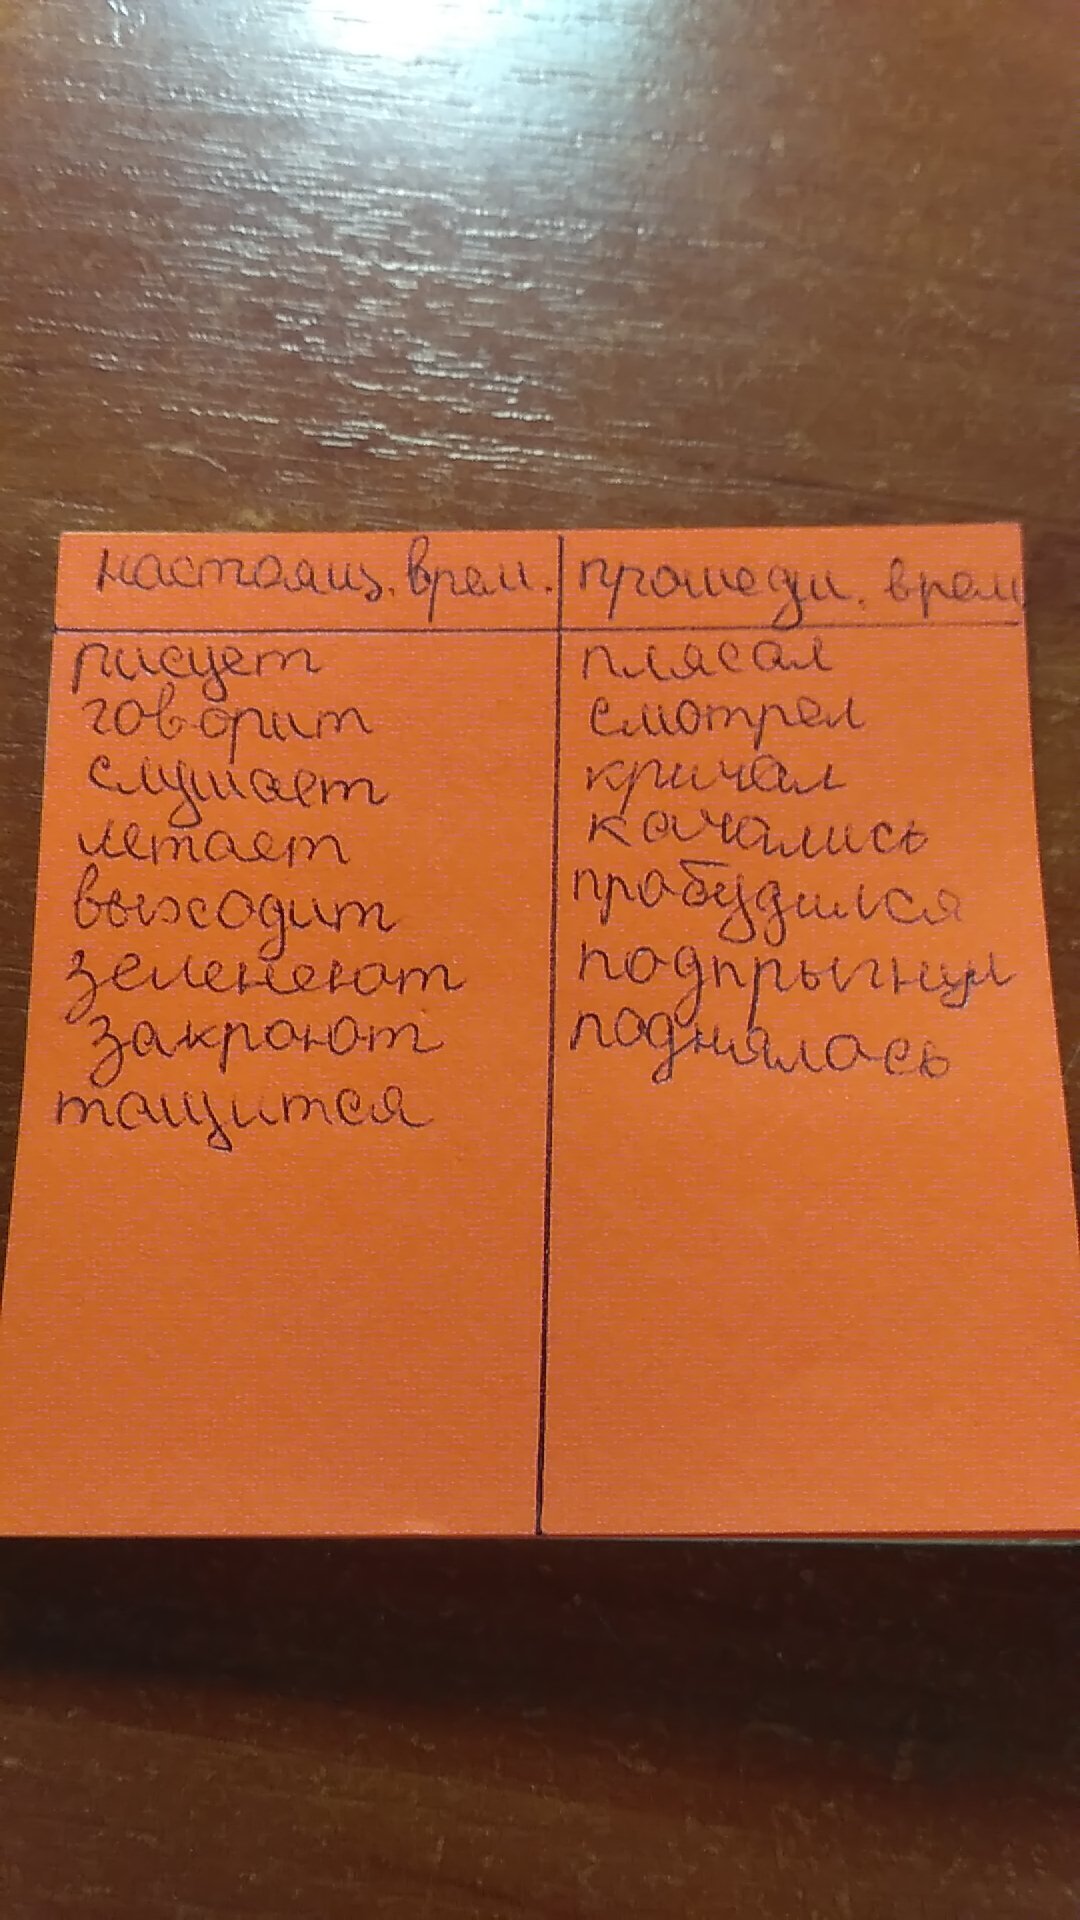 настоящ. врем.
прошедш. врем
рисует
говорит
слушает
летает
выходит
зеленеют
закроют
тащится
плясал
смотрел
кричал
качались
пробудился
подпрыгнул
поднялось